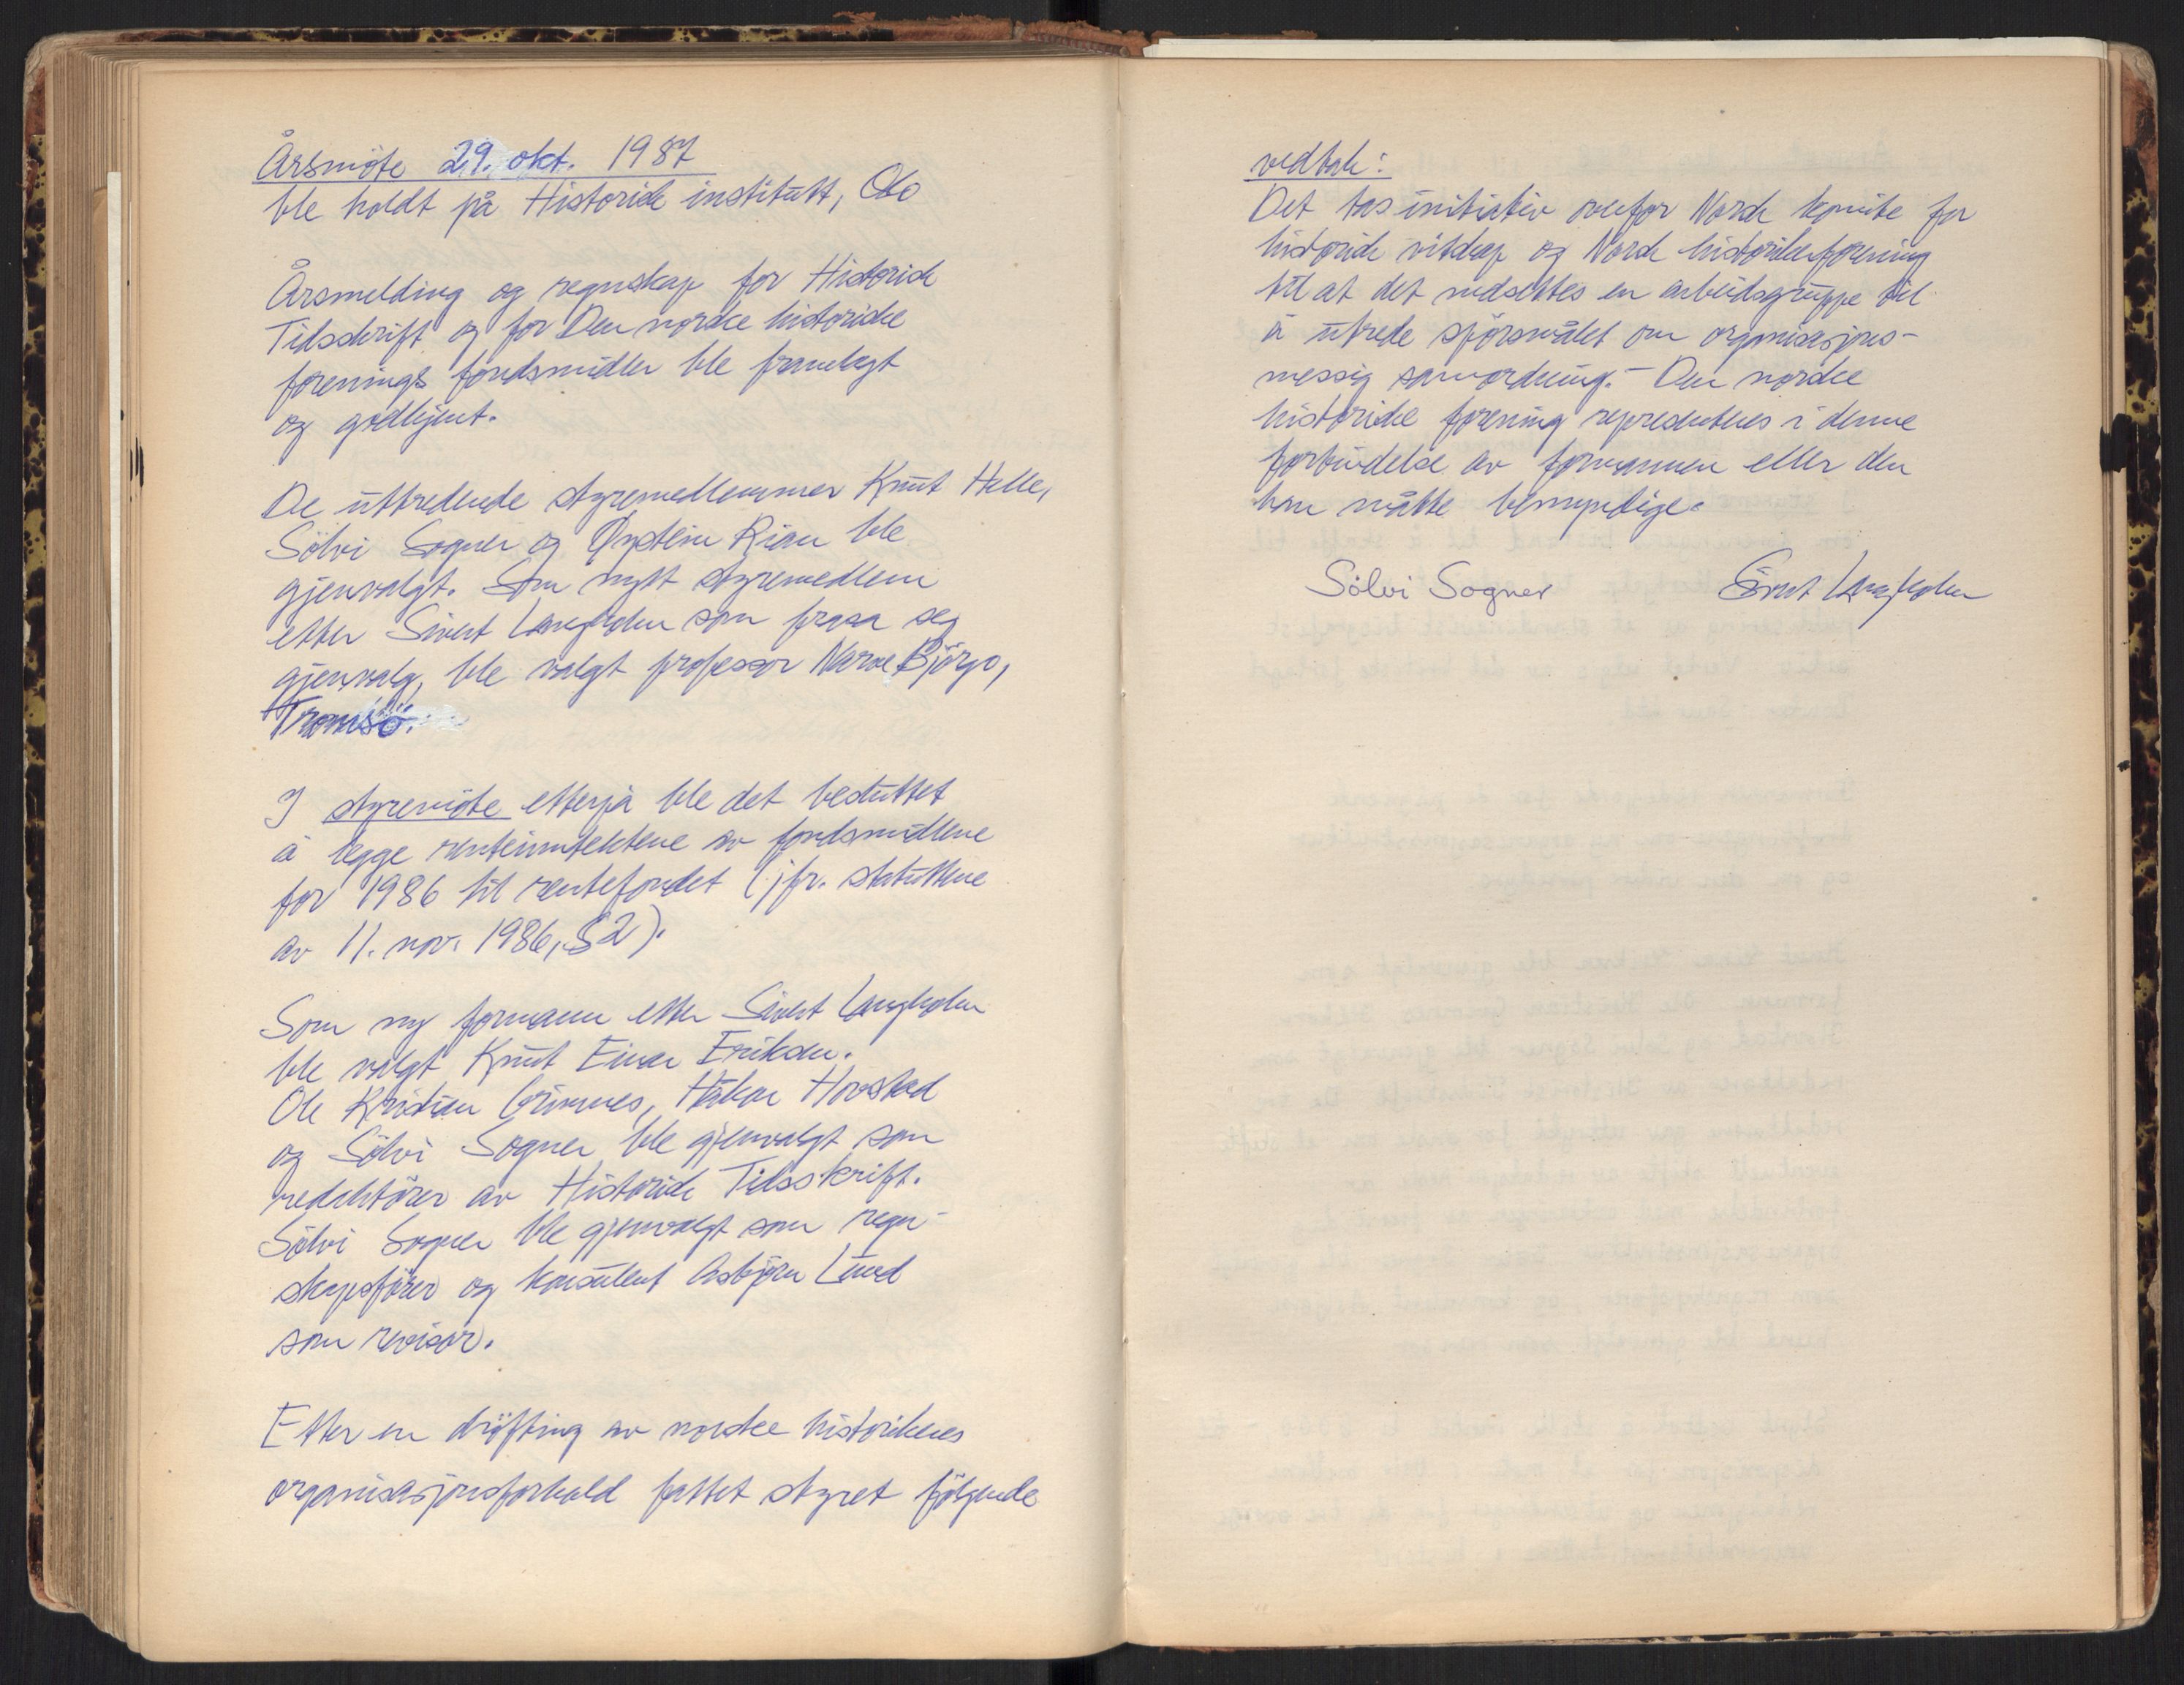 Årsmöte 29. okt. 1987
ble holdt på Historisk institutt, Oslo
Årsmelding og regnskap for Historisk
Tidsskrift og for Den norske historiske
forenings fondsmidler ble framlagt
og godkjent.
De uttredende styremedlemmer Knut Helle,
Sölvi Sogner og Øystein Rian ble
gjenvalgt. Som nytt styremedlem
etter Sivert Langholm som frasa seg
gjenvalg, ble valgt professor Narve Björgo,
Tromsö.
I styremöte etterpå ble det besluttet
å legge renteinntektene av fondsmidlene
for 1986 til rentefondet (jfr. statuttene
av 11. nov. 1986, §2).
Som ny formann etter Sivert Langholm
ble valgt Knut Einar Eriksen.
Ole Kristian Grimnes, Håkon Hovstad
og Sölvi Sogner ble gjenvalgt som
redaktörer av Historisk Tidsskrift.
Sölvi Sogner ble gjenvalgt som regn-
skapsförer og konsulent Asbjørn Lund
som revisor.
Etter en dröfting av norske historikeres
organisasjonsforhold fattet styret fölgende
vedtak:
Det tas initiativ overfor Norsk komite for
historisk vitskap og Norsk historikerforening
til at det nedsettes en arbeidsgruppe til
å utrede spörsmålet om organisasjons-
messig samordning. - Den norske
historiske forening representeres i denne
forbindelse av formannen eller den
han måtte bemyndige.
Sölvi Sogner Sivert Langholm